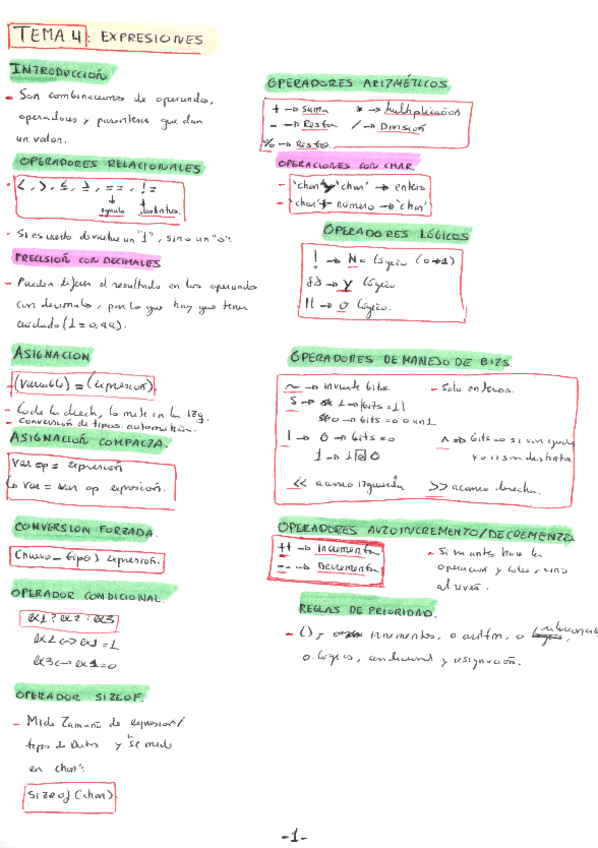 TEMA 4: EXPRESIONES
INTRODUCCIÓN
- Son combinaciones de operandos,
operadores y parentesis que dan
un valor.
OPERADORES RELACIONALES
<, >, ≤, ≥, ==, !=
igualo distintos.
- Si es cierto devuelve un "1", sino un "0".
PRECISIÓN CON DECIMALES
- Pueden el resultado en los operandos
con decimales, por lo que hay que tener
cuidado (1 = 0,99).
ASIGNACION
- (variable) = (expresión)
- Coge la derech, lo mete en la izq.
- conversión de tipos automática.
ASIGNACIÓN COMPACTA.
var op = expresión
var = var op expresión.
CONVERSION FORZADA.
(nuevo - tipo) expresión.
OPERADOR CONDICIONAL.
ex1 ? ex2 : ex3
ex2 <-> ex1 = 1
ex3 <-> ex1 = 0
OPERADOR SIZEOF.
- Mide Tamaño de expresión/
tipo de Datos y "se mide
en char".
sizeof (char)
OPERADORES ARITMÉTICOS
+ → Suma * → Multiplicación
- → Resta / → División
% → Resto.
OPERACIONES CON CHAR.
- 'char' y 'char' → entero
- 'char' + número → 'char'
OPERADORES LÓGICOS
! → No lógico (0→1)
&& → Y lógico
|| → O lógico.
OPERADORES DE MANEJO DE BITS.
~ → invierte bits. - Solo enteros.
1 → bits = 11
0 → bits = 0 0 un 1
| → 0 → bits = 0 ^ → bits = 0 si son iguales
1 → 1 o 0 y 1 si son distintos
<< avance izquierda >> avance derecha.
OPERADORES AUTOINCREMENTO/DECREMENTO
++ → Incrementa
-- → Decrementa
- Si va antes hace la
operacion y luego, sino
al revés.
REGLAS DE PRIORIDAD.
- (), incrementos, o aritm, o relacionales
o. lógicos, condicional y asignación.
-1-